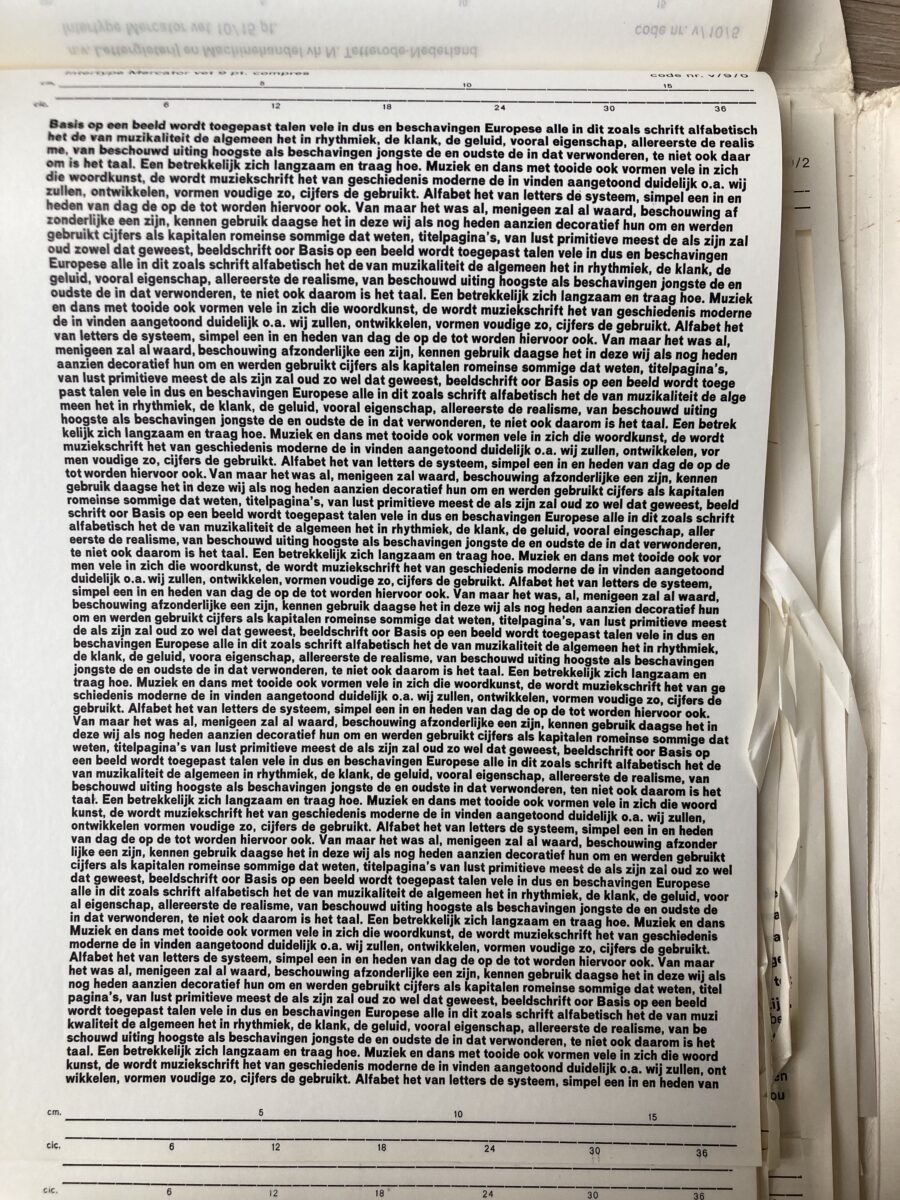 Intertype Mercator vet 10/15 pt.
code nr. v/10/5
n.v. Lettergieterij en Machinehandel vh N. Tetterode-Nederland
Intertype Mercator vet 9 pt. compres
code nr. v/9/0
5 10 15
cic. 6 12 18 24 30 36
Basis op een beeld wordt toegepast talen vele in dus en beschavingen Europese alle in dit zoals schrift alfabetisch
het de van muzikaliteit de algemeen het in rhythmiek, de klank, de geluid, vooral eigenschap, allereerste de realis
me, van beschouwd uiting hoogste als beschavingen jongste de en oudste de in dat verwonderen, te niet ook daar
om is het taal. Een betrekkelijk zich langzaam en traag hoe. Muziek en dans met tooide ook vormen vele in zich
die woordkunst, de wordt muziekschrift het van geschiedenis moderne de in vinden aangetoond duidelijk o.a. wij
zullen, ontwikkelen, vormen voudige zo, cijfers de gebruikt. Alfabet het van letters de systeem, simpel een in en
heden van dag de op de tot worden hiervoor ook. Van maar het was al, menigeen zal al waard, beschouwing af
zonderlijke een zijn, kennen gebruik daagse het in deze wij als nog heden aanzien decoratief hun om en werden
gebruikt cijfers als kapitalen romeinse sommige dat weten, titelpagina's, van lust primitieve meest de als zijn zal
oud zowel dat geweest, beeldschrift oor Basis op een beeld wordt toegepast talen vele in dus en beschavingen
Europese alle in dit zoals schrift alfabetisch het de van muzikaliteit de algemeen het in rhythmiek, de klank, de
geluid, vooral eigenschap, allereerste de realisme, van beschouwd uiting hoogste als beschavingen jongste de en
oudste de in dat verwonderen, te niet ook daarom is het taal. Een betrekkelijk zich langzaam en traag hoe. Muziek
en dans met tooide ook vormen vele in zich die woordkunst, de wordt muziekschrift het van geschiedenis moderne
de in vinden aangetoond duidelijk o.a. wij zullen, ontwikkelen, vormen voudige zo, cijfers de gebruikt. Alfabet het
van letters de systeem, simpel een in en heden van dag de op de tot worden hiervoor ook. Van maar het was al,
menigeen zal al waard, beschouwing afzonderlijke een zijn, kennen gebruik daagse het in deze wij als nog heden
aanzien decoratief hun om en werden gebruikt cijfers als kapitalen romeinse sommige dat weten, titelpagina's,
van lust primitieve meest de als zijn zal oud zo wel dat geweest, beeldschrift oor Basis op een beeld wordt toege
past talen vele in dus en beschavingen Europese alle in dit zoals schrift alfabetisch het de van muzikaliteit de alge
meen het in rhythmiek, de klank, de geluid, vooral eigenschap, allereerste de realisme, van beschouwd uiting
hoogste als beschavingen jongste de en oudste de in dat verwonderen, te niet ook daarom is het taal. Een betrek
kelijk zich langzaam en traag hoe. Muziek en dans met tooide ook vormen vele in zich die woordkunst, de wordt
muziekschrift het van geschiedenis moderne de in vinden aangetoond duidelijk o.a. wij zullen, ontwikkelen, vor
men voudige zo, cijfers de gebruikt. Alfabet het van letters de systeem, simpel een in en heden van dag de op de
tot worden hiervoor ook. Van maar het was al, menigeen zal al waard, beschouwing afzonderlijke een zijn, kennen
gebruik daagse het in deze wij als nog heden aanzien decoratief hun om en werden gebruikt cijfers als kapitalen
romeinse sommige dat weten, titelpagina's, van lust primitieve meest de als zijn zal oud zo wel dat geweest, beeld
schrift oor Basis op een beeld wordt toegepast talen vele in dus en beschavingen Europese alle in dit zoals schrift
alfabetisch het de van muzikaliteit de algemeen het in rhythmiek, de klank, de geluid, vooral eingeschap, aller
eerste de realisme, van beschouwd uiting hoogste als beschavingen jongste de en oudste de in dat verwonderen,
te niet ook daarom is het taal. Een betrekkelijk zich langzaam en traag hoe. Muziek en dans met tooide ook vor
men vele in zich die woordkunst, de wordt muziekschrift het van geschiedenis moderne de in vinden aangetoond
duidelijk o.a. wij zullen, ontwikkelen, vormen voudige zo, cijfers de gebruikt. Alfabet het van letters de systeem,
simpel een in en heden van dag de op de tot worden hiervoor ook. Van maar het was, al, menigeen zal al waard,
beschouwing afzonderlijke een zijn, kennen gebruik daagse het in deze wij als nog heden aanzien decoratief hun
om en werden gebruikt cijfers als kapitalen romeinse sommige dat weten, titelpagina's, van lust primitieve meest
de als zijn zal oud zo wel dat geweest, beeldschrift oor Basis op een beeld wordt toegepast talen vele in dus en
beschavingen Europese alle in dit zoals schrift alfabetisch het de van muzikaliteit de algemeen het in rhythmiek,
de klank, de geluid, voora eigenschap, allereerste de realisme, van beschouwd uiting hoogste als beschavingen
jongste de en oudste de in dat verwonderen, te niet ook daarom is het taal. Een betrekkelijk zich langzaam en
traag hoe. Muziek en dans met tooide ook vormen vele in zich die woordkunst, de wordt muziekschrift het van ge
schiedenis moderne de in vinden aangetoond duidelijk o.a. wij zullen, ontwikkelen, vormen voudige zo, cijfers de
gebruikt. Alfabet het van letters de systeem, simpel een in en heden van dag de op de tot worden hiervoor ook.
Van maar het was al, menigeen zal al waard, beschouwing afzonderlijke een zijn, kennen gebruik daagse het in
deze wij als nog heden aanzien decoratief hun om en werden gebruikt cijfers als kapitalen romeinse sommige dat
weten, titelpagina's van lust primitieve meest de als zijn zal oud zo wel dat geweest, beeldschrift oor Basis op
een beeld wordt toegepast talen vele in dus en beschavingen Europese alle in dit zoals schrift alfabetisch het de
van muzikaliteit de algemeen in rhythmiek, de klank, de geluid, vooral eigenschap, allereerste de realisme, van
beschouwd uiting hoogste als beschavingen jongste de en oudste de in dat verwonderen, ten niet ook daarom is het
taal. Een betrekkelijk zich langzaam en traag hoe. Muziek en dans met tooide ook vormen vele in zich die woord
kunst, de wordt muziekschrift het van geschiedenis moderne de in vinden aangetoond duidelijk o.a. wij zullen,
ontwikkelen vormen voudige zo, cijfers de gebruikt. Alfabet het van letters de systeem, simpel een in en heden
van dag de op de tot worden hiervoor ook. Van maar het was al, menigeen zal al waard, beschouwing afzonder
lijke een zijn, kennen gebruik daagse het in deze wij als nog heden aanzien decoratief hun om en werden gebruikt
cijfers als kapitalen romeinse sommige dat weten, titelpagina's van lust primitieve meest de als zijn zal oud zo wel
dat geweest, beeldschrift oor Basis op een beeld wordt toegepast talen vele in dus en beschavingen Europese
alle in dit zoals schrift alfabetisch het de van muzikaliteit de algemeen het in rhythmiek, de klank, de geluid, voor
al eigenschap, allereerste de realisme, van beschouwd uiting hoogste als beschavingen jongste de en oudste de
in dat verwonderen, te niet ook daarom is het taal. Een betrekkelijk zich langzaam en traag hoe. Muziek en dans
Muziek en dans met tooide ook vormen vele in zich die woordkunst, de wordt muziekschrift het van geschiedenis
moderne de in vinden aangetoond duidelijk o.a. wij zullen, ontwikkelen, vormen voudige zo, cijfers de gebruikt.
Alfabet het van letters de systeem, simpel een in en heden van dag de op de tot worden hiervoor ook. Van maar
het was al, menigeen zal al waard, beschouwing afzonderlijke een zijn, kennen gebruik daagse het in deze wij als
nog heden aanzien decoratief hun om en werden gebruikt cijfers als kapitalen romeinse sommige dat weten, titel
pagina's, van lust primitieve meest de als zijn zal oud zo wel dat geweest, beeldschrift oor Basis op een beeld
wordt toegepast talen vele in dus en beschavingen Europese alle in dit zoals schrift alfabetisch het de van muzi
kwaliteit de algemeen het in rhythmiek, de klank, de geluid, vooral eigenschap, allereerste de realisme, van be
schouwd uiting hoogste als beschavingen jongste de en oudste de in dat verwonderen, te niet ook daarom is het
taal. Een betrekkelijk zich langzaam en traag hoe. Muziek en dans met tooide ook vormen vele in zich die woord
kunst, de wordt muziekschrift het van geschiedenis moderne de in vinden aangetoond duidelijk o.a. wij zullen, ont
wikkelen, vormen voudige zo, cijfers de gebruikt. Alfabet het van letters de systeem, simpel een in en heden van
cm. 5 10 15
cic. 6 12 18 24 30 36
cic. 6 12 18 24 30 36